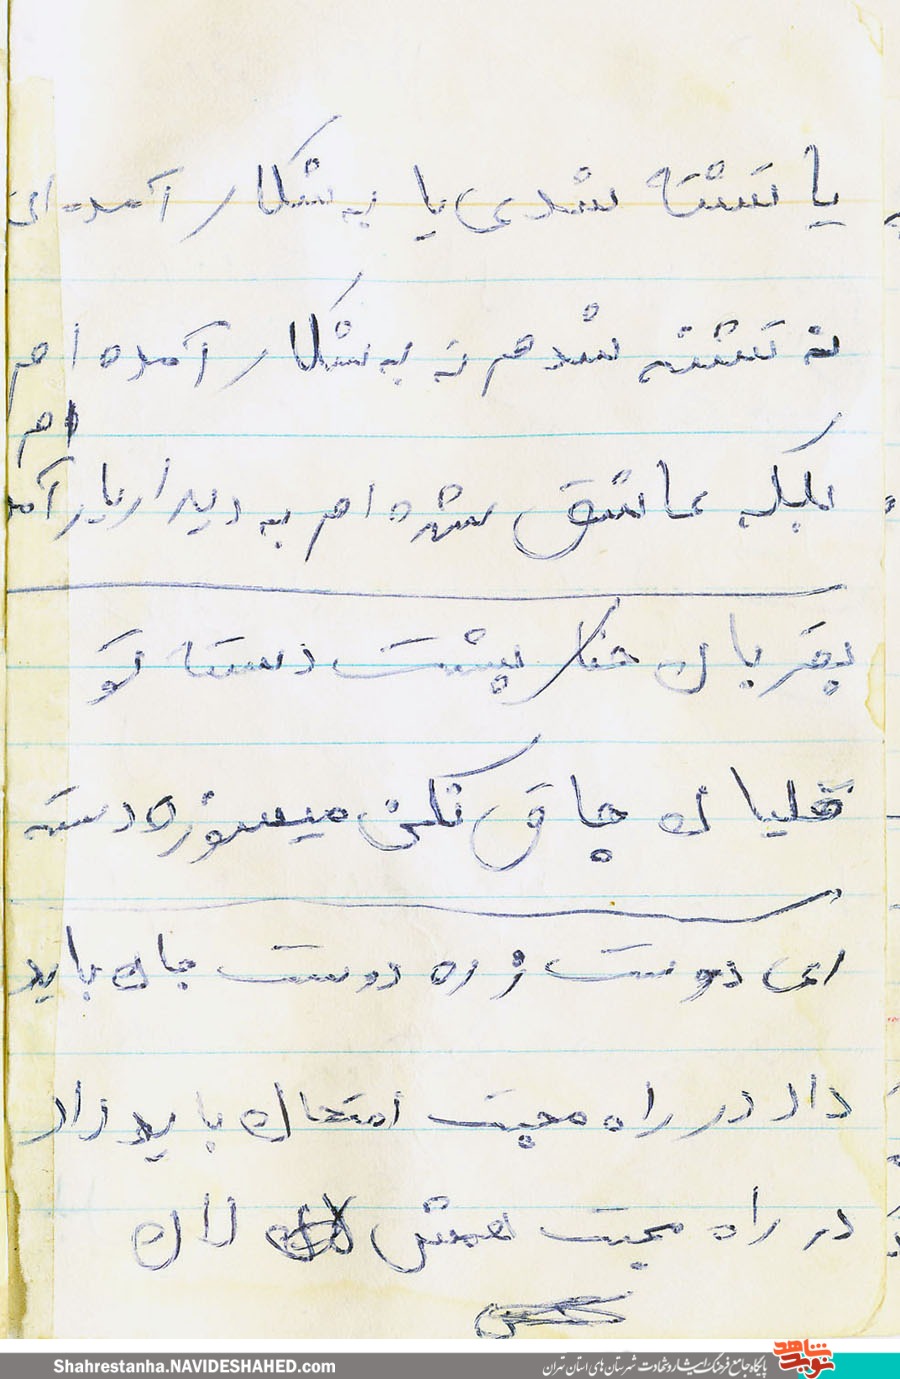 یا تشنه شدی یا به شکار آمده ای
نه تشنه شدم نه به شکار آمده ام
ام
بلکه عاشق شده ام به دیدار یار آمد
بقربان حنا پشت دسته تو
قلیان چاق نکن میسوزه دسته
ای دوست ز ره دوست جان باید
داد در راه محبت امتحان باید داد
در راه محبت لان
Shahrestanha.NAVIDESHAHED.com
نوید شاهد
پایگاه جامع فرهنگ ایثار و شهادت شهرستان های استان تهران